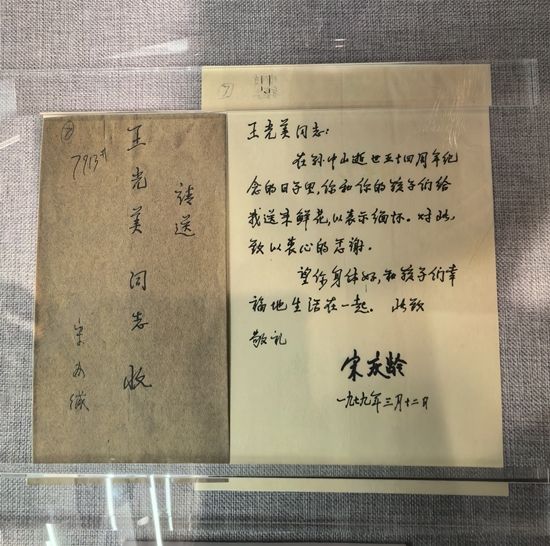 ⑦
7913
王光美同志收
请送
宋为缄
⑦
王光美同志：
在孙中山逝世五十四周年纪
念的日子里，你和你的孩子们给
我送来鲜花，以表示缅怀。对此，
致以衷心的感谢。
望你身体好，和孩子们幸
福地生活在一起。 此致
敬礼
宋庆龄
一九七九年三月十二日